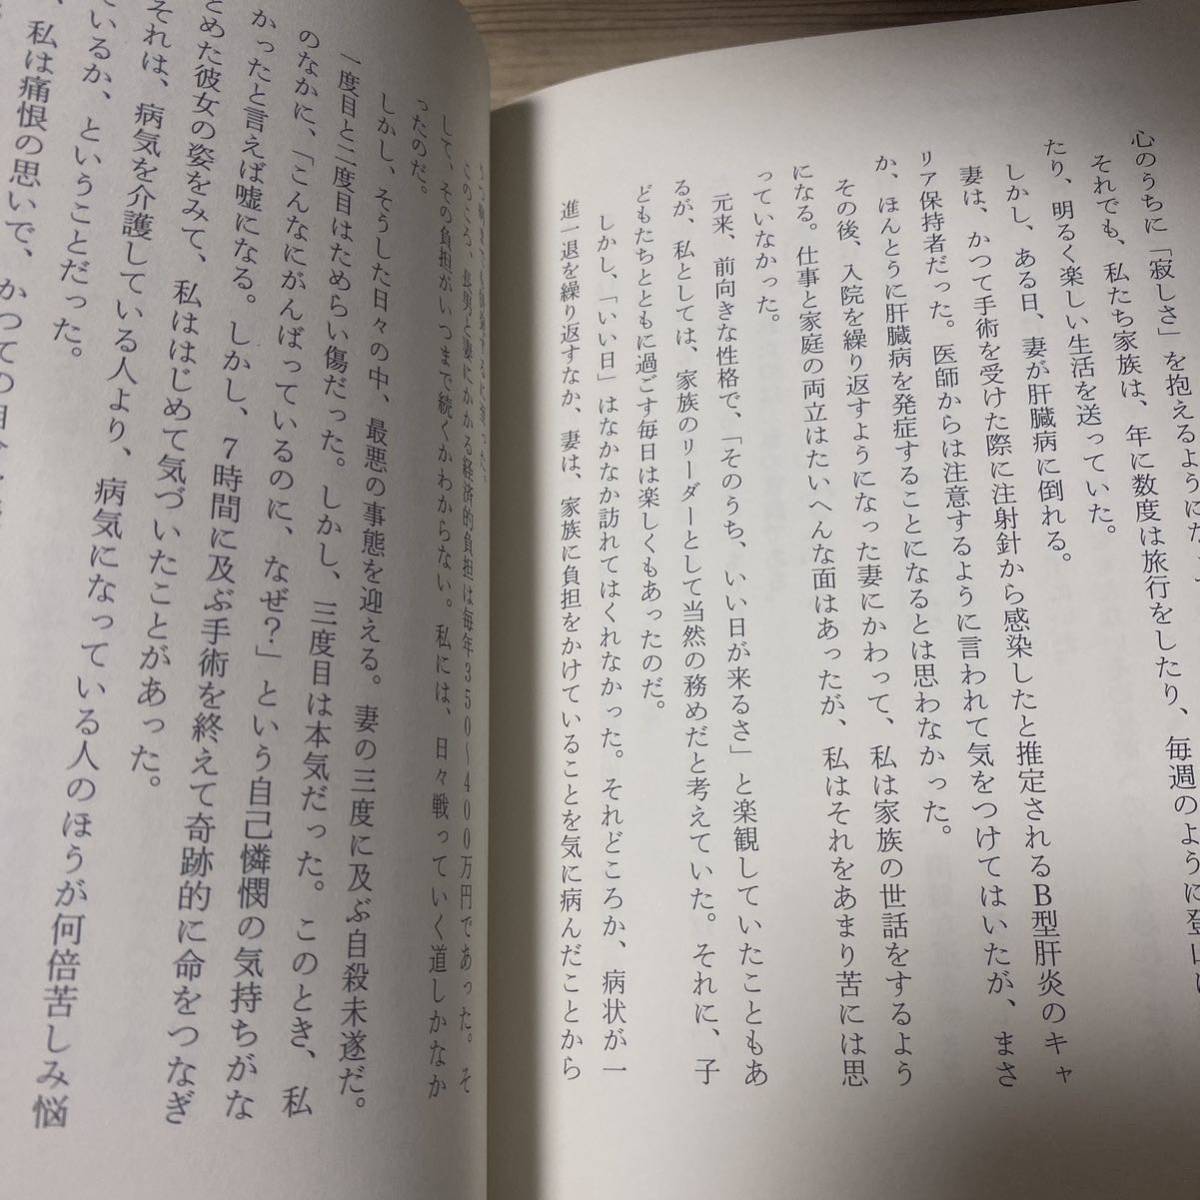 心のうちに「寂しさ」を抱えるように
それでも、私たち家族は、年に数度は旅行をしたり、毎週のように登山に
たり、明るく楽しい生活を送っていた。
しかし、ある日、妻が肝臓病に倒れる。
妻は、かつて手術を受けた際に注射針から感染したと推定されるB型肝炎のキャ
リア保持者だった。医師からは注意するように言われて気をつけてはいたが、まさ
か、ほんとうに肝臓病を発症することになるとは思わなかった。
その後、入院を繰り返すようになった妻にかわって、私は家族の世話をするよう
になる。仕事と家庭の両立はたいへんな面はあったが、私はそれをあまり苦には思
っていなかった。
元来、前向きな性格で、「そのうち、いい日が来るさ」と楽観していたこともあ
るが、私としては、家族のリーダーとして当然の務めだと考えていた。それに、子
どもたちとともに過ごす毎日は楽しくもあったのだ。
しかし、「いい日」はなかなか訪れてはくれなかった。それどころか、病状が一
進一退を繰り返すなか、妻は、家族に負担をかけていることを気に病んだことから
このころ、長男と妻にかかる経済的負担は毎年350～400万円であった。そ
して、その負担がいつまで続くかわからない。私には、日々戦っていく道しかなか
ったのだ。
しかし、そうした日々の中、最悪の事態を迎える。妻の三度に及ぶ自殺未遂だ。
一度目と二度目はためらい傷だった。しかし、三度目は本気だった。このとき、私
のなかに、「こんなにがんばっているのに、なぜ？」という自己憐憫の気持ちがな
かったと言えば嘘になる。しかし、7時間に及ぶ手術を終えて奇跡的に命をつなぎ
とめた彼女の姿をみて、私ははじめて気づいたことがあった。
それは、病気を介護している人より、病気になっている人のほうが何倍苦しみ悩
ているか、ということだった。
私は痛恨の思いで、かつての自分